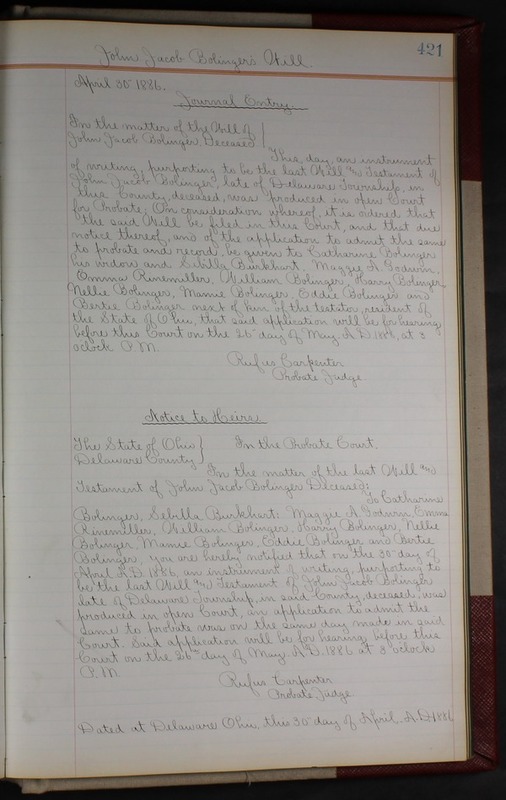 421
John Jacob Bolingers Will.
April 30 1886.
Journal Entry.
In the matter of the Will of
John Jacob Bolinger, Deceased
This day an instrument
of writing, purporting to be the last Will and Testament of
John Jacob Bolinger, late of Delaware Township, in
this County, deceased, was produced in open Court
for Probate; On consideration whereof, it is ordered that
the said Will be filed in this Court, and that due
notice thereof, and of the application to admit the same
to probate and record, be given to Catharine Bolinger
his widow and Sibilla Burkhart, Maggie A. Godwin,
Emma Rinemiller, William Bolinger, Harry Bolinger,
Nellie Bolinger, Mamie Bolinger, Eddie Bolinger and
Bertie Bolinger next of kin of the testator, resident of
the State of Ohio, that said application will be for hearing
before this Court on the 26 day of May A.D. 1886, at 3
oclock P.M.
Rufus Carpenter
Probate Judge
Notice to Heirs
The State of Ohio } In the Probate Court.
Delaware County
In the matter of the last Will and
Testament of John Jacob Bolinger Deceased:
To Catharine
Bolinger, Sibilla Burkhart: Maggie A. Godwin, Emma
Rinemiller, William Bolinger, Harry Bolinger, Nellie
Bolinger, Mamie Bolinger, Eddie Bolinger and Bertie
Bolinger, you are hereby notified that on the 30 day of
April A.D. 1886, an instrument of writing, purporting to
be the last Will and Testament of John Jacob Bolinger
late of Delaware Township, in said County, deceased, was
produced in open Court, an application to admit the
same to probate was on the same day made in said
Court. Said application will be for hearing before this
Court on the 26th day of May. A.D. 1886 at 3 oclock
P.M.
Rufus Carpenter
Probate Judge
Dated at Delaware Ohio, this 30 day of April A.D. 1886